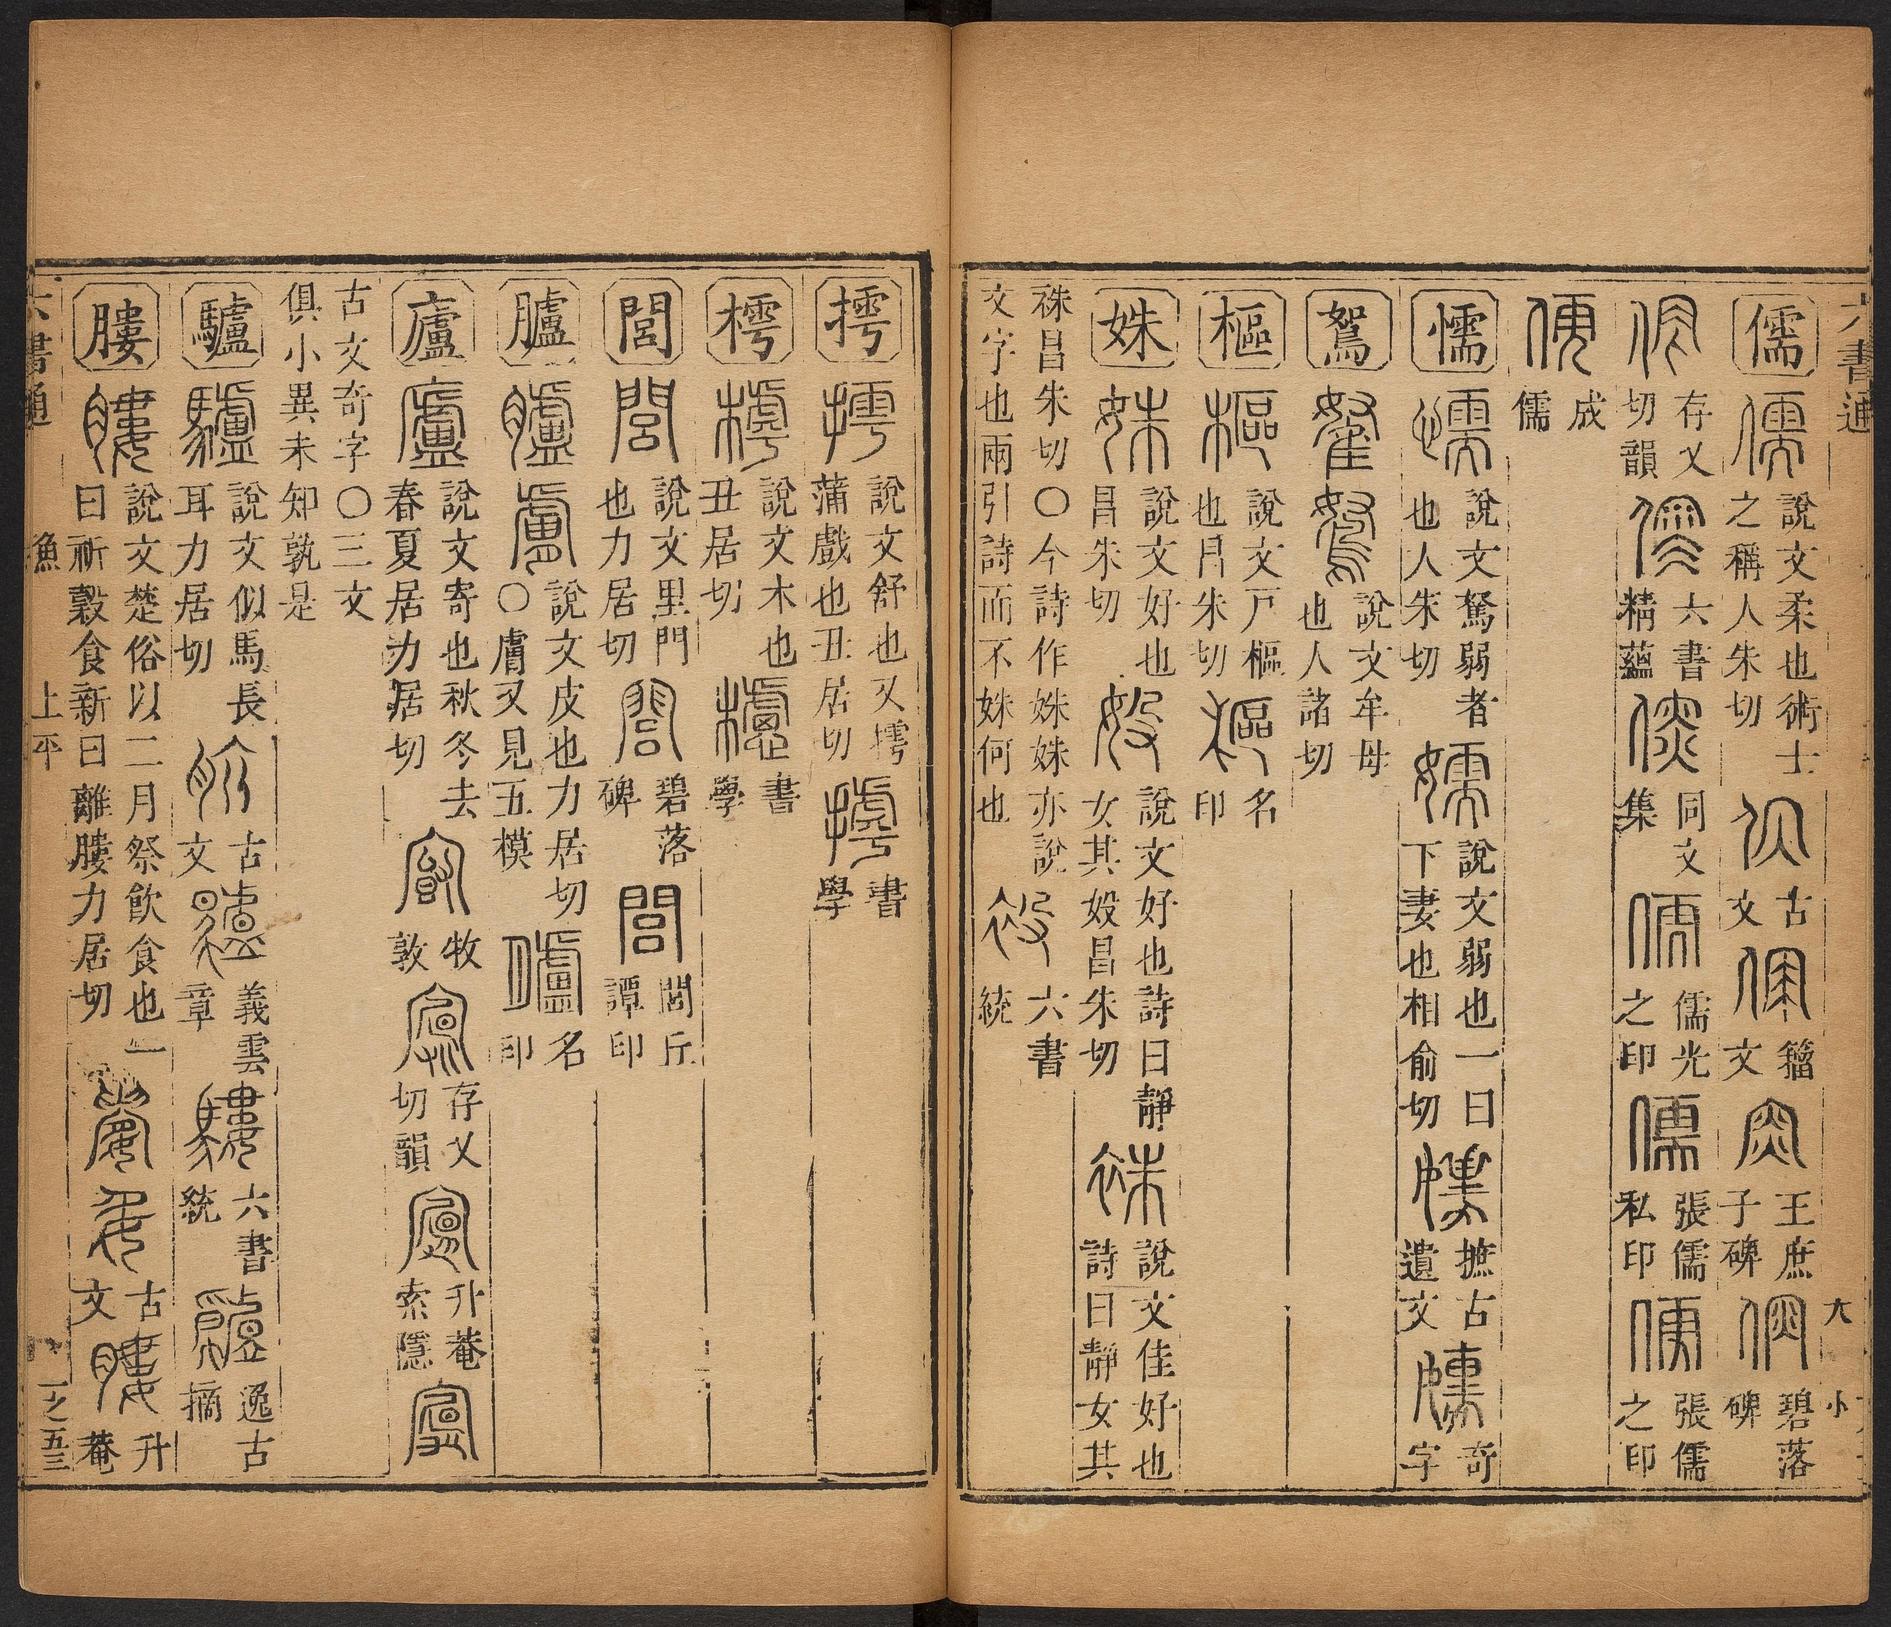 六書通
儒 說文柔也術士之稱人朱切 古文 籀文 王庶子碑 碧落碑
存乂切韻 六書精蘊 同文集 儒光之印 張儒私印 張儒之印
成儒
懦 說文駑弱者也人朱切 說文弱也一曰下妻也相俞切 摭古遺文 奇字
鴽 說文牟母也人諸切
樞 說文戸樞也昌朱切 名印
姝 說文好也昌朱切 說文好也詩曰靜女其㚫昌朱切 說文佳好也詩曰靜女其
袾昌朱切〇今詩作姝姝亦說文字也兩引詩而不姝何也 六書統
摴 說文舒也又摴蒲戲也丑居切 書學
樗 說文木也丑居切 書學
閭 說文里門也力居切 碧落碑 閭丘譚印
臚 說文皮也力居切〇膚又見五模 名印
廬 說文寄也秋冬去春夏居力居切 牧敦 存乂切韻 升菴索隱
古文奇字〇三文俱小異未知孰是
驢 說文似馬長耳力居切 古文 義雲章 六書統 逸古摘
膢 說文楚俗以二月祭飲食也一曰祈穀食新曰離膢力居切 古文 升菴
六書通 漁 上平 一之五三